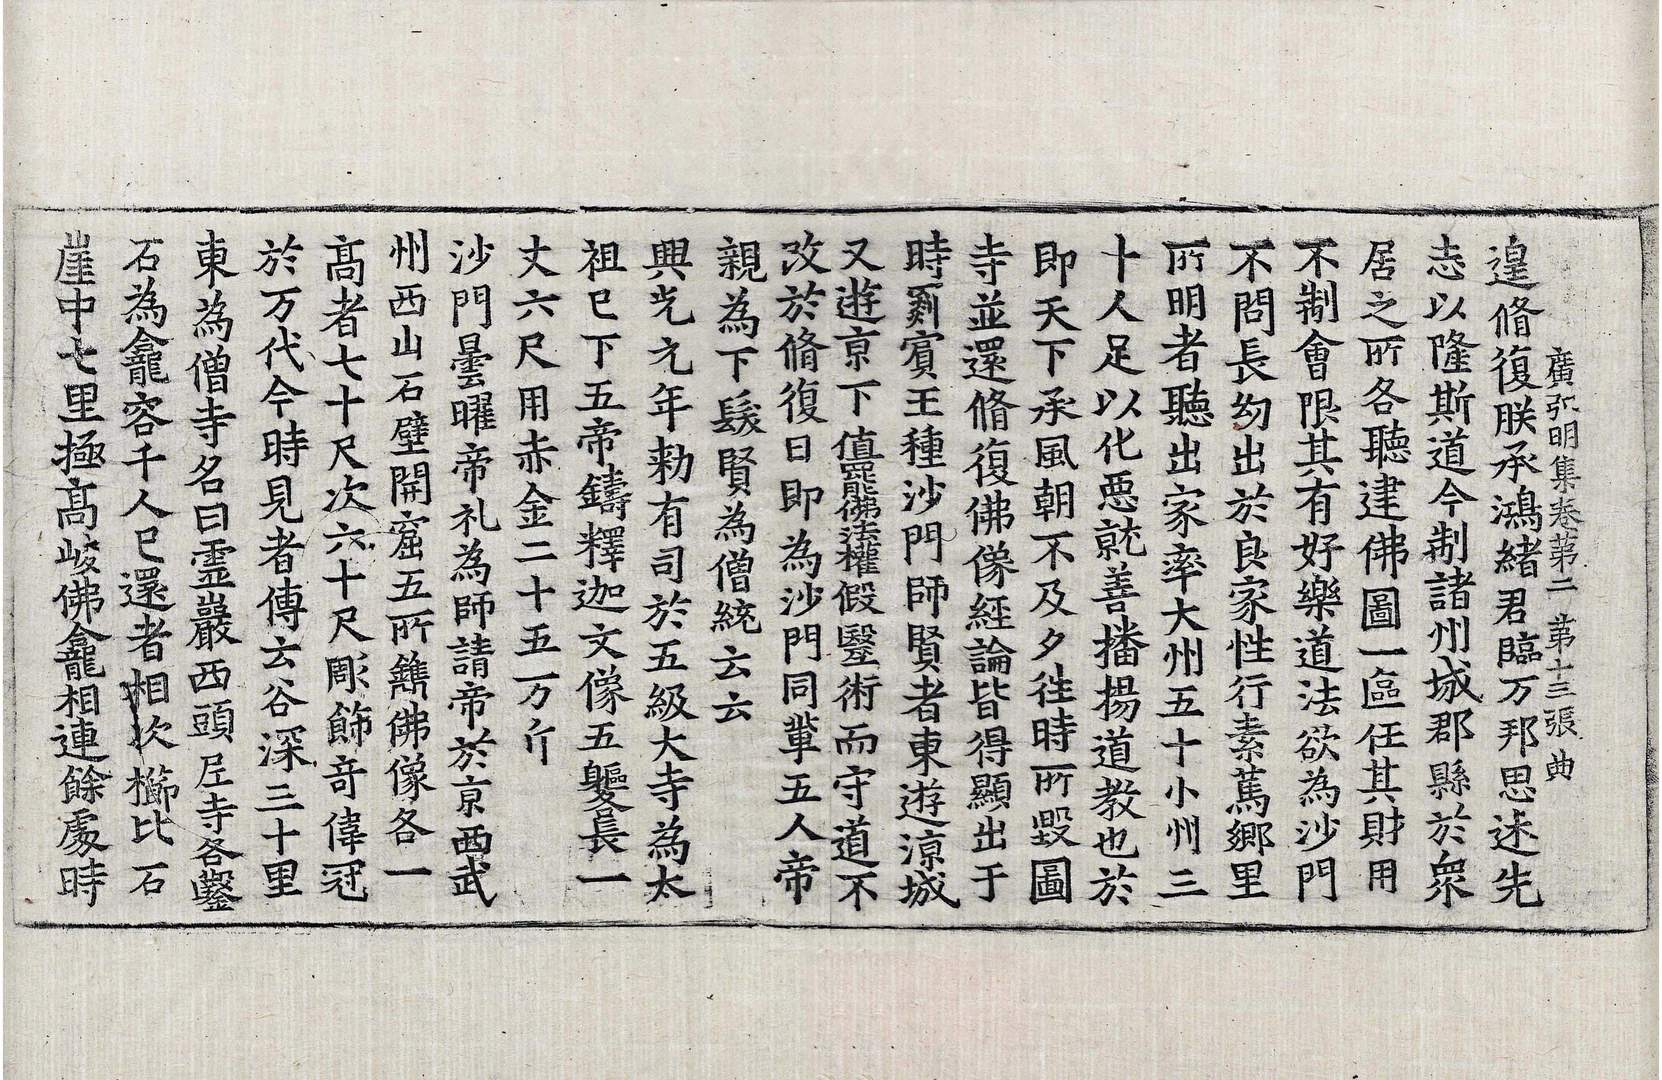 廣弘明集卷第二 第十三張 典
遑脩復朕承鴻緒君臨万邦思述先
志以隆斯道今制諸州城郡縣於衆
居之所各聽建佛圖一區任其財用
不制會限其有好樂道法欲為沙門
不問長㓜出於良家性行素萬鄉里
所明者聽出家率大州五十小州三
十人足以化惡就善播揚道教也於
即天下承風朝不及夕徃時所毀圖
寺並還脩復佛像經論皆得顯出于
時罽賓王種沙門師賢者東遊涼城
又遊京下值罷佛法權假毉術而守道不
改於脩復日即為沙門同輩五人帝
親為下髮賢為僧統云云
興光元年勑有司於五級大寺為太
祖已下五帝鑄釋迦文像五軀長一
丈六尺用赤金二十五万斤
沙門曇曜帝礼為師請帝於京西武
州西山石壁開窟五所鐫佛像各一
髙者七十尺次六十尺彫飾竒偉冠
於万代今時見者傳云谷深三十里
東為僧寺名曰霊巖西頭尼寺各鑿
石為龕容千人已還者相次櫛比石
崖中七里極髙峻佛龕相連餘處時